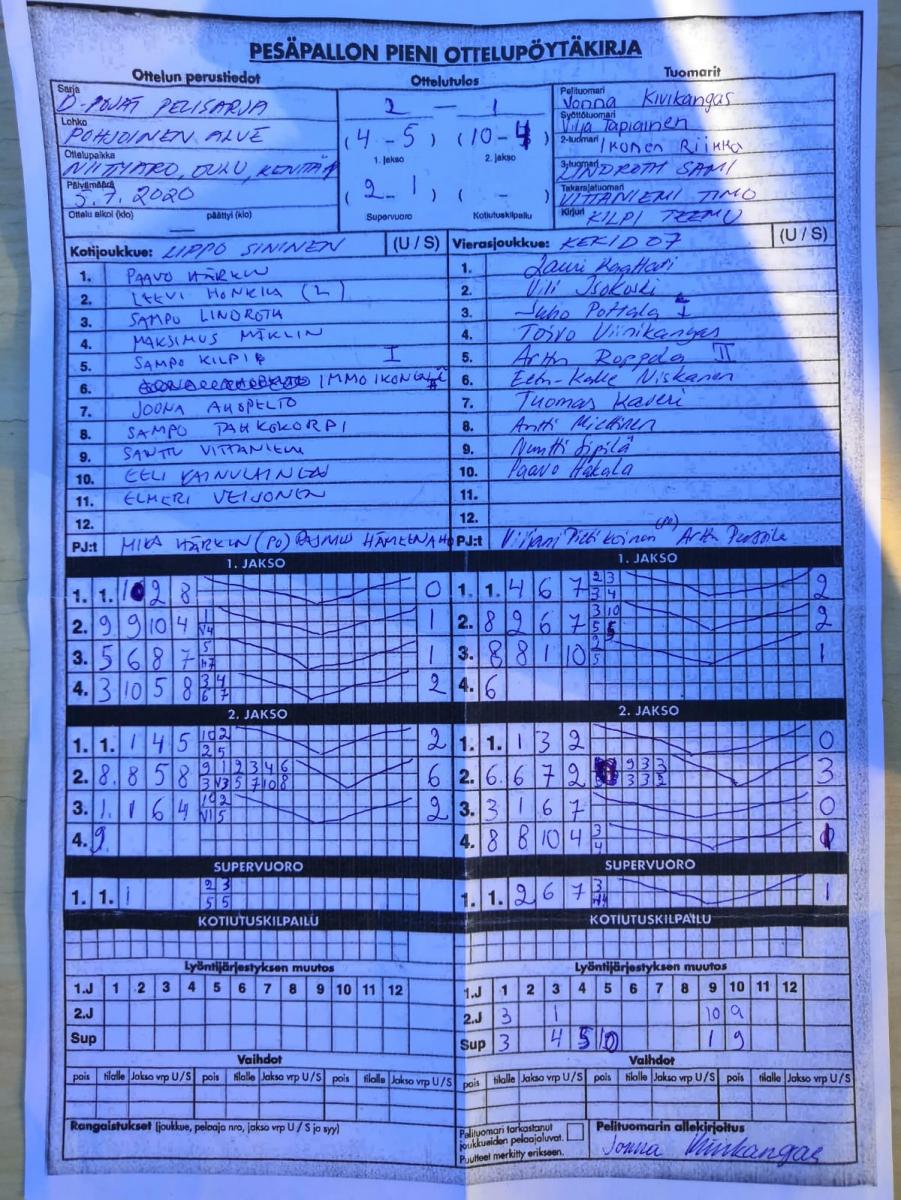 PESÄPALLON PIENI OTTELUPÖYTÄKIRJA
Ottelun perustiedot
Sarja
D-POJAT PELISARJA
Lohko
POHJOINEN ALUE
Ottelupaikka
Päivämäärä
2020
Ottelu alkoi (klo) päättyi (klo)
Ottelutulos
2 – 1
(4-5) (10-4)
1. jakso 2. jakso
(2-1) ( - )
Supervuoro Kotiutuskilpailu
Tuomarit
Pelituomari
Jonna Kivikangas
Syöttötuomari
Vilja Tapiainen
2-tuomari
Ikonen Riikka
3-tuomari
LINDROTH SAMI
Takarajatuomari
VITTANIEMI TIMO
Kirjuri
KILPI TEEMU
Kotijoukkue: LIPPO SININEN (U / S)
1. PAAVO HÄRKIN
2. LEEVI HONKILA (L)
3. SAMPO LINDROTH
4. MAKSIMUS MÄKLIN
5. SAMPO KILPI I
6. IMMO IKONEN
7. JOONA AHOPELTO
8. SAMPO TAHKOKORPI
9. SANTU VITTANIEMI
10. EELI KAINULAINEN
11. ELMERI VEIJONEN
12.
PJ:t MIKA HÄRKIN (PO)
Vierasjoukkue: KEKI D07 (U / S)
1. Lauri
2. Vili Isokoski
3. Juho Pottala I
4. Toivo Viinikangas
5. II
6. Eetu-Kalle Niskanen
7. Tuomas Kaveri
8. Antti Miettinen
9. Sipilä
10. Paavo Hakala
11.
12.
PJ:t Viljami Pietikäinen (PO)
1. JAKSO
1. 1. 2 8 0
2. 9 9 10 4 1
3. 5 6 8 7 1
4. 3 10 5 8 2
1. JAKSO
1. 1. 4 6 7 2
2. 8 2 6 7 2
3. 8 8 1 10 1
4. 6
2. JAKSO
1. 1. 1 4 5 2
2. 8. 8 5 8 6
3. 1. 1 6 4 2
4. 9.
2. JAKSO
1. 1. 1 3 2 0
2. 6. 6 7 2 3
3. 3 1 6 7 0
4. 8 8 10 4
SUPERVUORO
1. 1. 1
SUPERVUORO
1. 1. 2 6 7 1
KOTIUTUSKILPAILU
KOTIUTUSKILPAILU
Lyöntijärjestyksen muutos
1.J 1 2 3 4 5 6 7 8 9 10 11 12
2.J
Sup
Lyöntijärjestyksen muutos
1.J 1 2 3 4 5 6 7 8 9 10 11 12
2.J 3 1 10 9
Sup 3 4 5 10 1 9
Vaihdot
pois tilalle Jakso vrp U / S pois tilalle Jakso vrp U / S
Vaihdot
pois tilalle Jakso vrp U / S pois tilalle Jakso vrp U / S
Rangaistukset (joukkue, pelaaja nro, jakso vrp U / S ja syy)
Pelituomari tarkastanut
joukkueiden pelaajaluvat.
Puutteet merkitty erikseen.
Pelituomarin allekirjoitus
Jonna Kivikangas